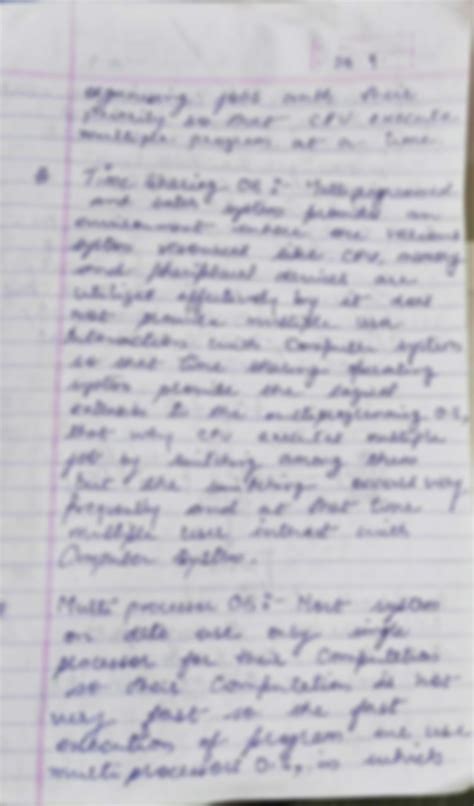 organising jobs with their
priority so that CPU execute
multiple program at a time.
Time sharing OS :- Multiprogrammed
and system provide an
environment where are various
system resources like CPU, memory
and peripheral devices are
utilized effectively by it does
not provide multiple user
interaction with Computer system
so that time sharing operating
system provide the logical
to the multiprogramming O.S,
that why CPU executes multiple
job by switching among them
but the switching very
frequently and at that time
multiple user interact with
Computer System.
Multi processor OS :- Most system
on date use only single
processor for their Computation
so their Computation is not
very fast so the fast
execution of program we use
multi processor O.S, in which